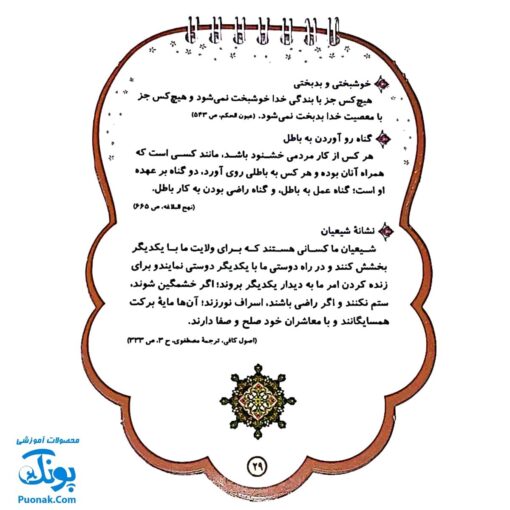 خوشبختی و بدبختی
هیچ‌کس جز با بندگی خدا خوشبخت نمی‌شود و هیچ‌کس جز
با معصیت خدا بدبخت نمی‌شود. (عیون الحکم، ص ۵۴۳)
گناه رو آوردن به باطل
هر کس از کار مردمی خشنود باشد، مانند کسی است که
همراه آنان بوده و هر کس به باطلی روی آورد، دو گناه بر عهده
او است؛ گناه عمل به باطل، و گناه راضی بودن به کار باطل.
(نهج البلاغه، ص ۶۶۵)
نشانهٔ شیعیان
شیعیان ما کسانی هستند که برای ولایت ما با یکدیگر
بخشش کنند و در راه دوستی ما با یکدیگر دوستی نمایندو برای
زنده کردن امر ما به دیدار یکدیگر بروند؛ اگر خشمگین شوند،
ستم نکنند و اگر راضی باشند، اسراف نورزند؛ آن‌ها مایهٔ برکت
همسایگانند و با معاشران خود صلح و صفا دارند.
(اصول کافی، ترجمهٔ مصطفوی، ج ۳، ص ۳۳۳)
۲۹
محصولات آموزشی
پونک
Puonak.Com